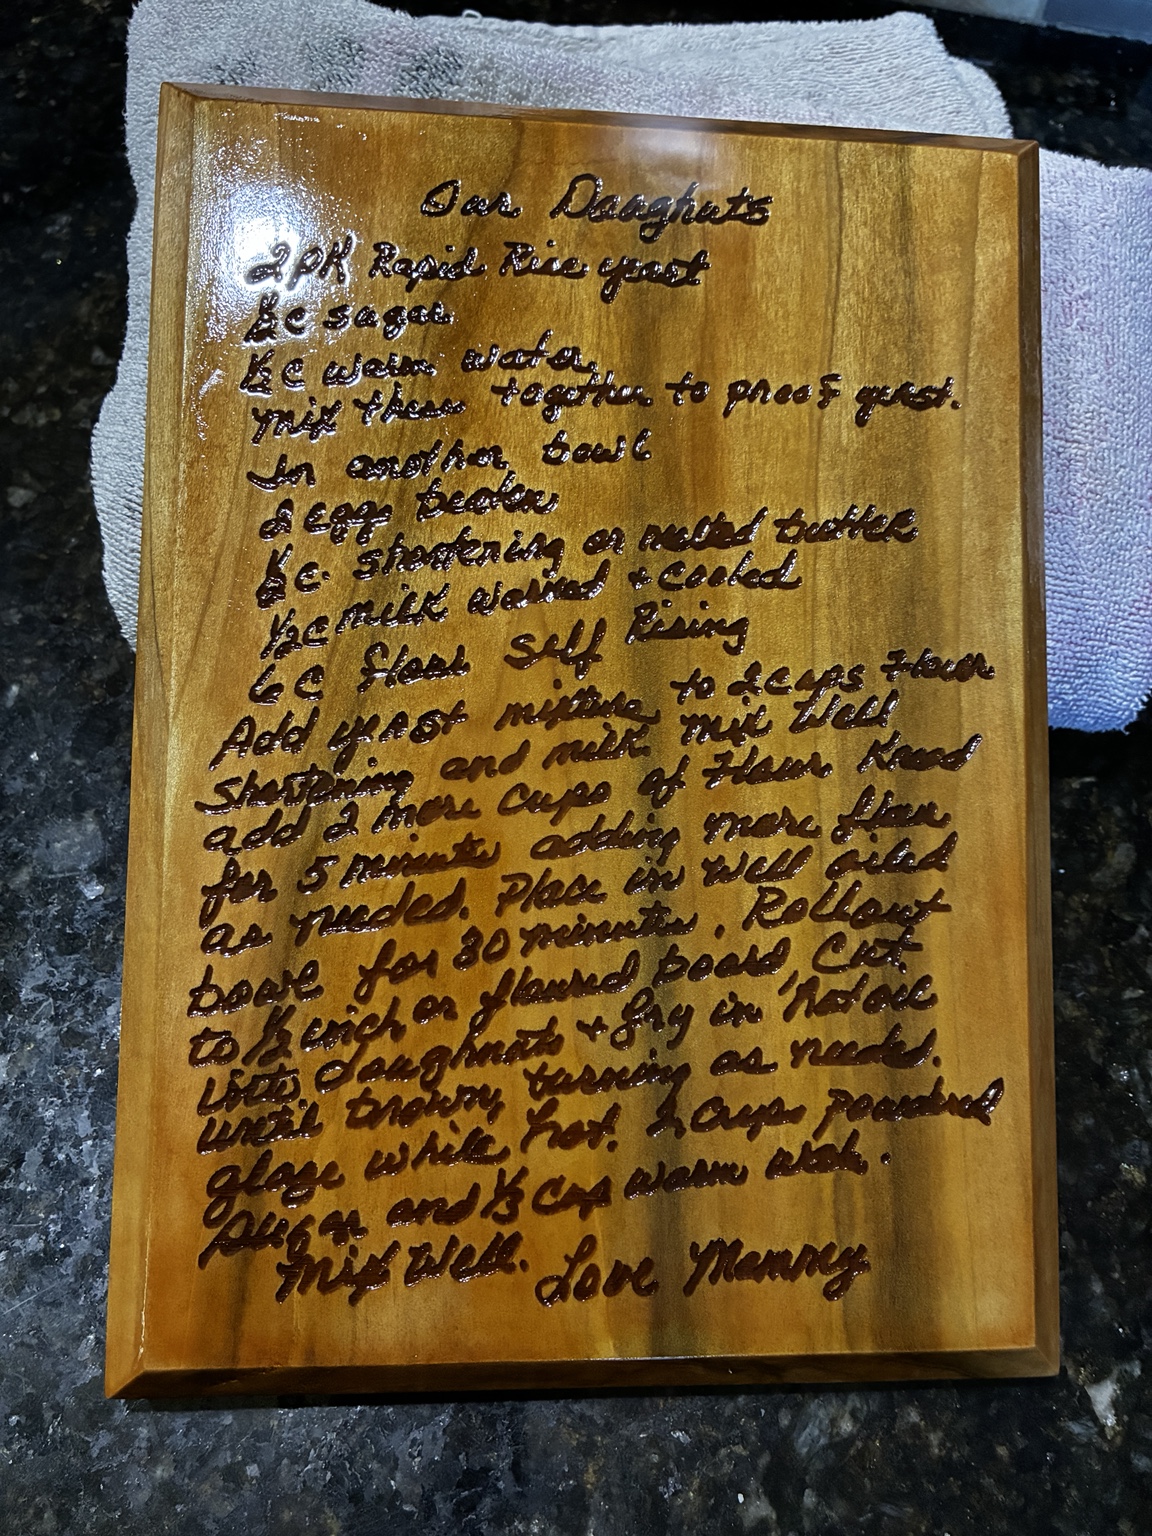 Our Doughnuts
2 PK Rapid Rise yeast
½ c sugar
½ c warm water
mix these together to proof yeast.
In another bowl
2 eggs beaten
½ c. shortening or melted butter
½ c milk warmed + cooled
6 c flour Self Rising
Add yeast mixture to 2 cups Flour
shortening and milk. mix Well
add 2 more cups of Flour. Knead
for 5 minutes adding more flour
as needed. Place in Well oiled
bowl for 30 minutes. Roll out
to ½ inch on floured board Cut
into doughnuts + fry in hot oil
until brown, turning as needed.
glaze while hot. 2 Cups powdered
Sugar and ⅓ cup warm
Mix Well. Love Memmy